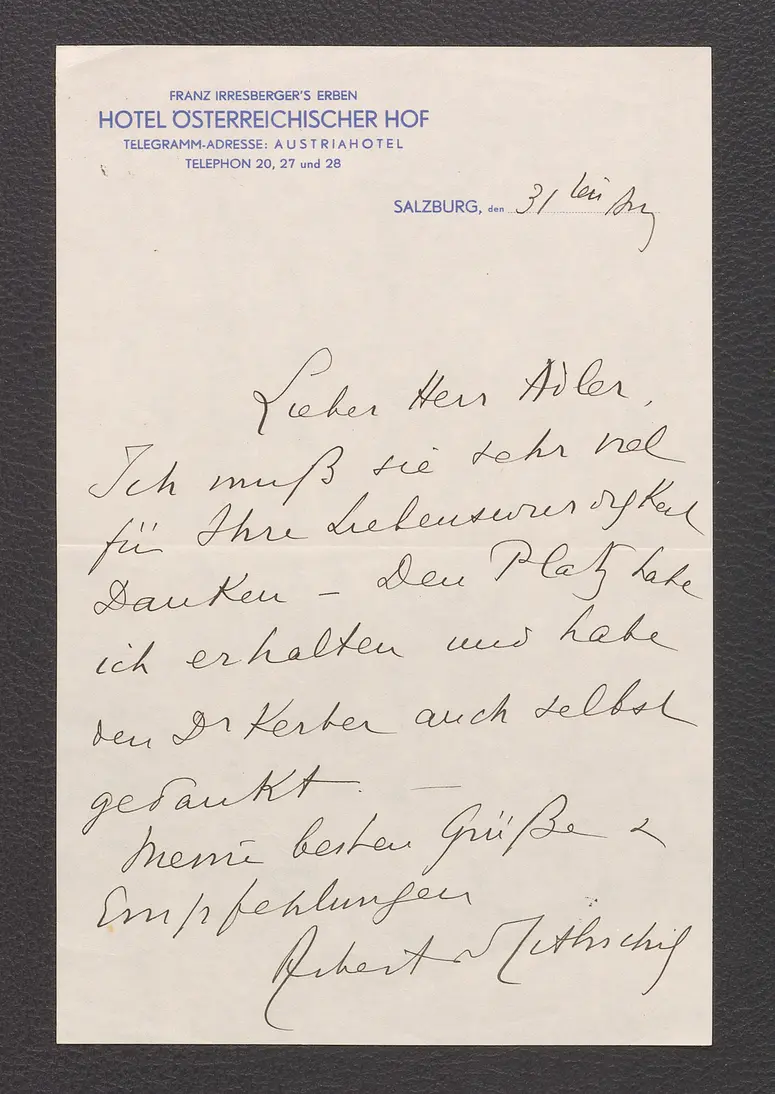 FRANZ IRRESBERGER'S ERBEN
HOTEL ÖSTERREICHISCHER HOF
TELEGRAMM-ADRESSE: AUSTRIAHOTEL
TELEPHON 20, 27 und 28
SALZBURG, den 31ten Aug
Lieber Herr Adler,
Ich muß sie sehr viel
für Ihre Liebenswurdigkeit
Danken – Den Platz habe
ich erhalten und habe
den Dr Kerber auch selbst
gedankt. —
Meine besten Grüße &
Empfehlungen